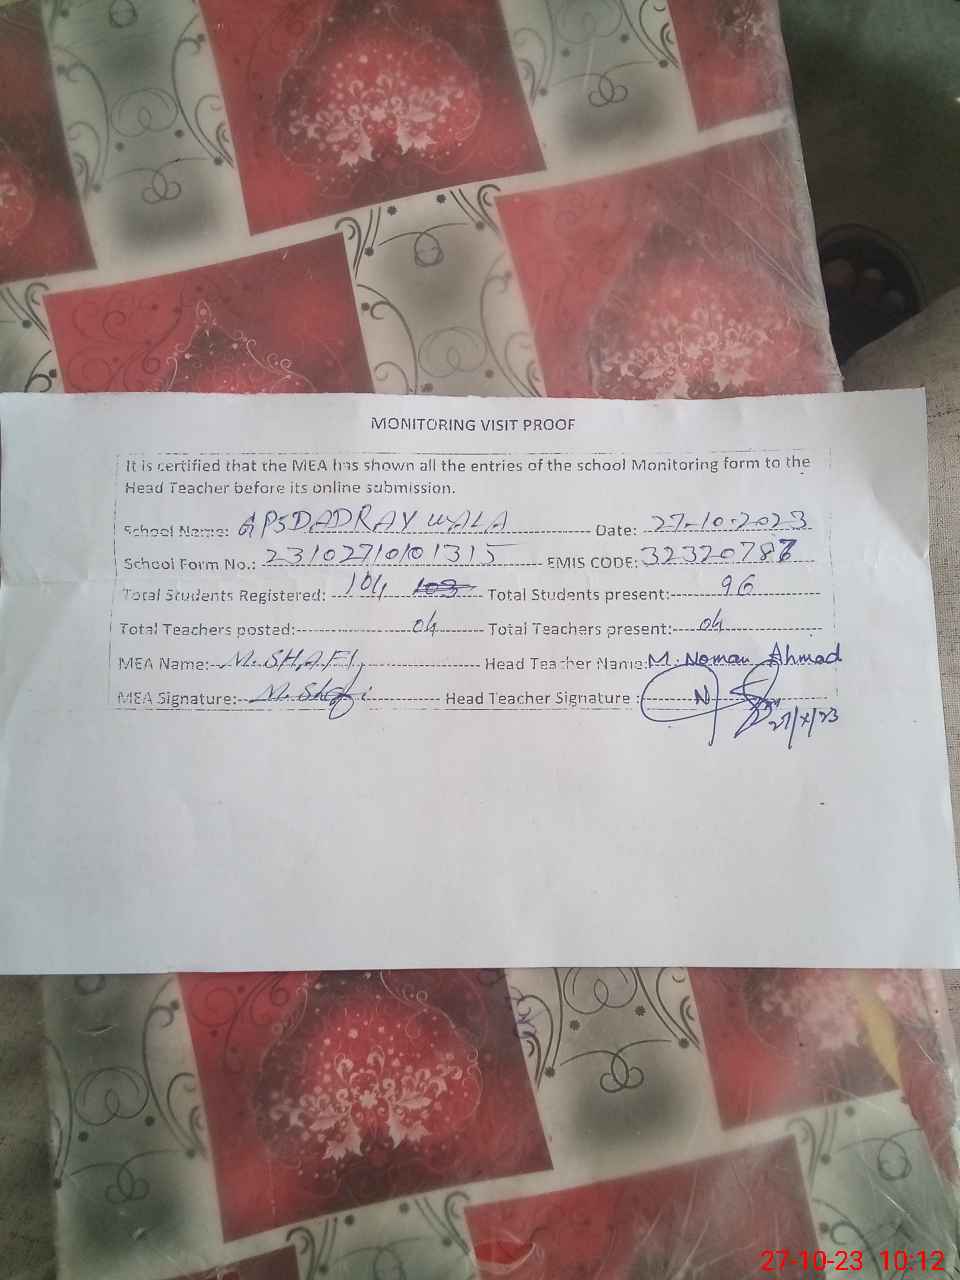 MONITORING VISIT PROOF
It is certified that the MEA has shown all the entries of the school Monitoring form to the
Head Teacher before its online submission.
School Name: GPS DADRAY WALA Date: 27-10-2023
School Form No.: 2310271010 1315 EMIS CODE: 32320787
Total Students Registered: 104 103 Total Students present: 96
Total Teachers posted: 04 Total Teachers present: 04
MEA Name: M. SHAFI Head Teacher Name: M. Noman Ahmad
MEA Signature: M. Shafi Head Teacher Signature : N
27/X/23
27-10-23 10:12